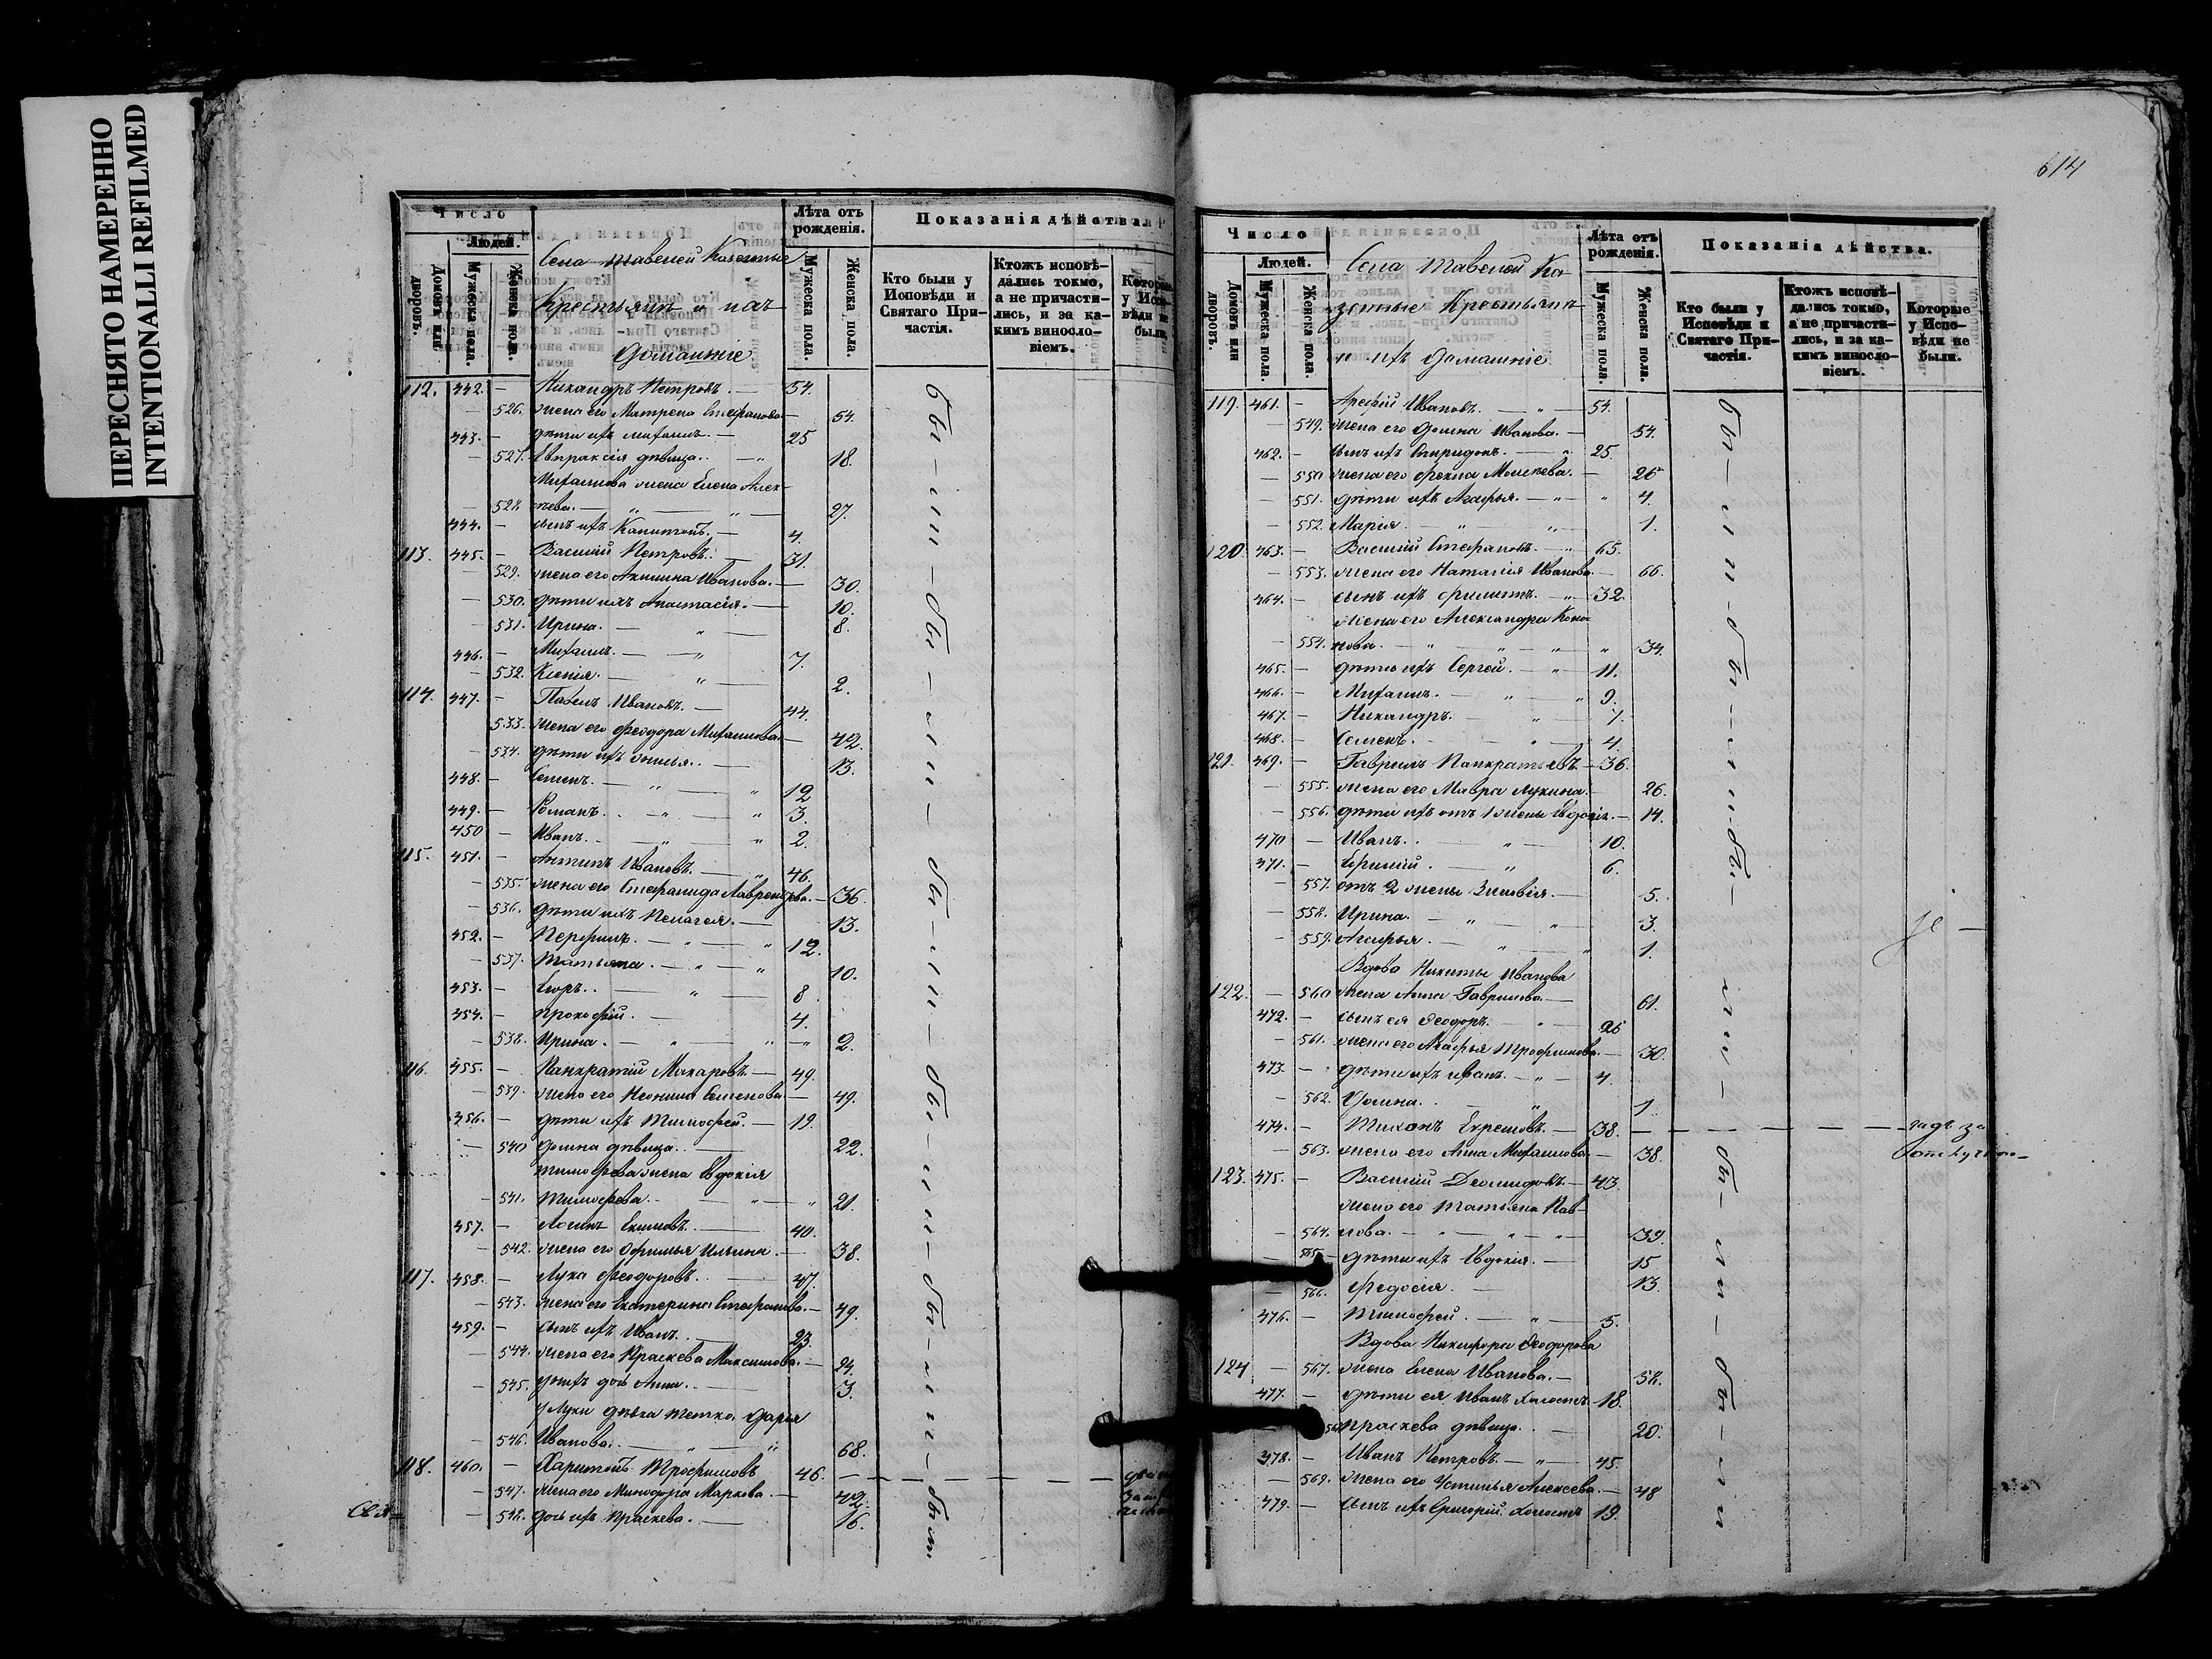 ПЕРЕСНЯТО НАМЕРЕННО
INTENTIONALLI REFILMED
Число
Людей.
Домовъ или дворовъ.
Мужеска пола.
Женска пола.
Села Тавеней Казенные
Крестьянъ и ихъ
домашніе
Лѣта отъ рожденія.
Мужеска пола.
Женска пола.
Показанія дѣйства
Кто были у Исповѣди и Святаго Причастія.
Ктожъ исповѣдались токмо, а не причастились, и за какимъ винословіемъ.
112. 442. — Никандръ Петровъ. — 54.
— 526. жена его Матрена Стефанова — 54.
443. — дѣти ихъ Михаилъ. — 25
— 527. Евпраксія дѣвица. — 18.
Михаилова жена Елена Алек-
— 528. нева. — 27.
444. — сынъ ихъ Капитонъ. — 4.
113. 445. — Василій Петровъ. — 31.
— 529. жена его Акилина Иванова. — 30.
— 530. дѣти ихъ Анастасія. — 10.
— 531. Ирина. — 8.
446. — Михаилъ. — 7.
— 532. Ксенія. — 2.
114. 447. — Павелъ Ивановъ. — 44.
533. жена его Феодора Михаилова — 42.
— 534. дѣти ихъ — 13.
448. — Семенъ. — 12
449. — Романъ. — 3.
450 — Иванъ. — 2.
115. 451. — Антипъ Ивановъ. — 46.
— 535. жена его Стефанида Лаврентьева. — 36.
— 536. дѣти ихъ Пелагея. — 13.
452. — Перфилъ. — 12.
— 537. Татьяна. — 10.
453. — Егоръ. — 8.
454. — Прокофій. — 4.
— 538. Ирина. — 2.
116. 455. — Панкратій Макаровъ. — 49.
— 539. жена его Неонила Семенова — 49.
456. — дѣти ихъ Тимофей. — 19.
— 540 Домна дѣвица. — 22.
Тимофева жена Евдокія
— 541. Тимофева. — 21.
457. — Логинъ Екимовъ. — 40.
— 542. жена его Офимья Ильина. — 38.
117. 458. — Лука Феодоровъ. — 47.
— 543. жена его Екатерина Стефанова. — 49.
459. — сынъ ихъ Иванъ. — 23.
— 544. жена его Праскева Максимова. — 24.
— 545. у нихъ дочь Анна. — 3.
у Луки дѣвка тетка Дарья
— 546. Иванова. — 68.
118. 460. — Харитонъ Трофимовъ 46. —
— 547. жена его Минодора Маркова. — 42.
— 548. дочь ихъ Праскева. — 16.
бы — ли — бы — ли — бы — ли — бы — ли — бы — ли — были
614
Число
Людей.
Домовъ или дворовъ.
Мужеска пола.
Женска пола.
Села Тавеней Ка-
зенные Крестьянъ
и ихъ домашніе
Лѣта отъ рожденія.
Мужеска пола.
Женска пола.
Показанія дѣйства.
Кто были у Исповѣди и Святаго Причастія.
Ктожъ исповѣдались токмо, а не причастились, и за какимъ винословіемъ.
Которые у Исповѣди не были.
119. 461. — Арефій Ивановъ. — 54.
— 549. жена его Домна Иванова. — 54.
462. — сынъ ихъ Спиридонъ. — 25.
— 550 жена его Фекла Моисеева. — 26
— 551. дѣти ихъ Агафья. — 4.
— 552. Марія. — 1.
120. 463. — Василій Стефановъ. — 65.
— 553. жена его Наталія Иванова. — 66.
464. — сынъ ихъ Филиппъ. — 32.
жена его Александра Коно-
— 554. нова. — 34.
465. — дѣти ихъ Сергей. — 11.
466. — Михаилъ. — 9.
467. — Никандръ. — 7.
468. — Семенъ. — 4.
121. 469. — Гаврилъ Панкратьевъ — 36.
— 555. жена его Мавра Лукина. — 26.
— 556. дѣти ихъ отъ 1 жены Евдокія. — 14.
470 — Иванъ. — 10.
471. — Ефимій. — 6.
— 557. отъ 2 жены Зиновія. — 5.
— 558. Ирина. — 3.
— 559. Агафья. — 1.
Вдова Никиты Иванова
122. — 560 жена Анна Гаврилова. — 61.
472. — сынъ ея Феодоръ. — 26
— 561. жена его Агафья Трофимова. — 30.
473. — дѣти ихъ Иванъ. — 4.
— 562. Улина. — 1.
474. — Тихонъ Ефремовъ. — 38. —
— 563. жена его Анна Михаилова — 38.
123. 475. — Василій Деомидовъ. — 43.
жена его Татьяна Пав-
— 564. лова. — 39.
— 565 — дѣти ихъ Евдокія. — 15
— 566. Федосія. — 13.
476. — Тимофей. — 5.
Вдова Никифора Феодорова
124 — 567. жена Елена Иванова. — 52.
477. — дѣти ея Иванъ холостъ. 18.
Праскева дѣвица. — 20.
478. — Иванъ Петровъ. — 45.
— 569. жена его Устинья Алексеева. — 48
479. — сынъ ихъ Григорій холостъ 19.
бы — ли — бы — ли — бы — ли — бы — ли — бы — ли